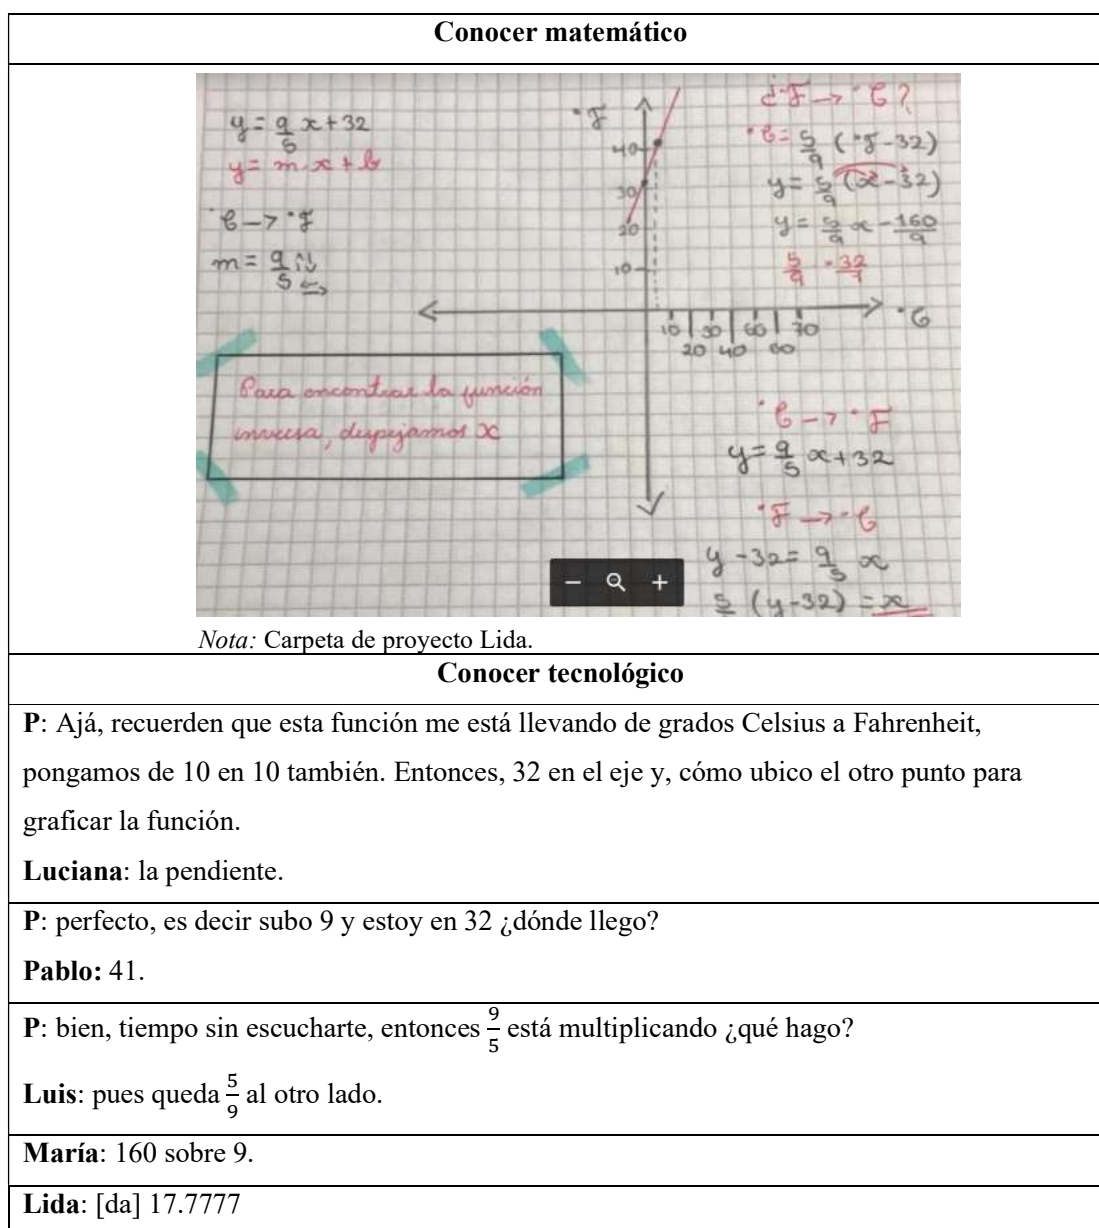 Conocer matemático
y = 9/5 x + 32
y = m·x + b
°C → °F
m = 9/5
°F
40
30
20
10
10 20 30 40 60 60 70
°C
¿°F → °C?
°C = 5/9 (°F - 32)
y = 5/9 (x - 32)
y = 5/9 x - 160/9
5/9 · 32/1
Para encontrar la función
inversa, despejamos x
°C → °F
y = 9/5 x + 32
°F → °C
y - 32 = 9/5 x
5 (y - 32) = x
Nota: Carpeta de proyecto Lida.
Conocer tecnológico
P: Ajá, recuerden que esta función me está llevando de grados Celsius a Fahrenheit,
pongamos de 10 en 10 también. Entonces, 32 en el eje y, cómo ubico el otro punto para
graficar la función.
Luciana: la pendiente.
P: perfecto, es decir subo 9 y estoy en 32 ¿dónde llego?
Pablo: 41.
P: bien, tiempo sin escucharte, entonces 9/5 está multiplicando ¿qué hago?
Luis: pues queda 5/9 al otro lado.
María: 160 sobre 9.
Lida: [da] 17.7777